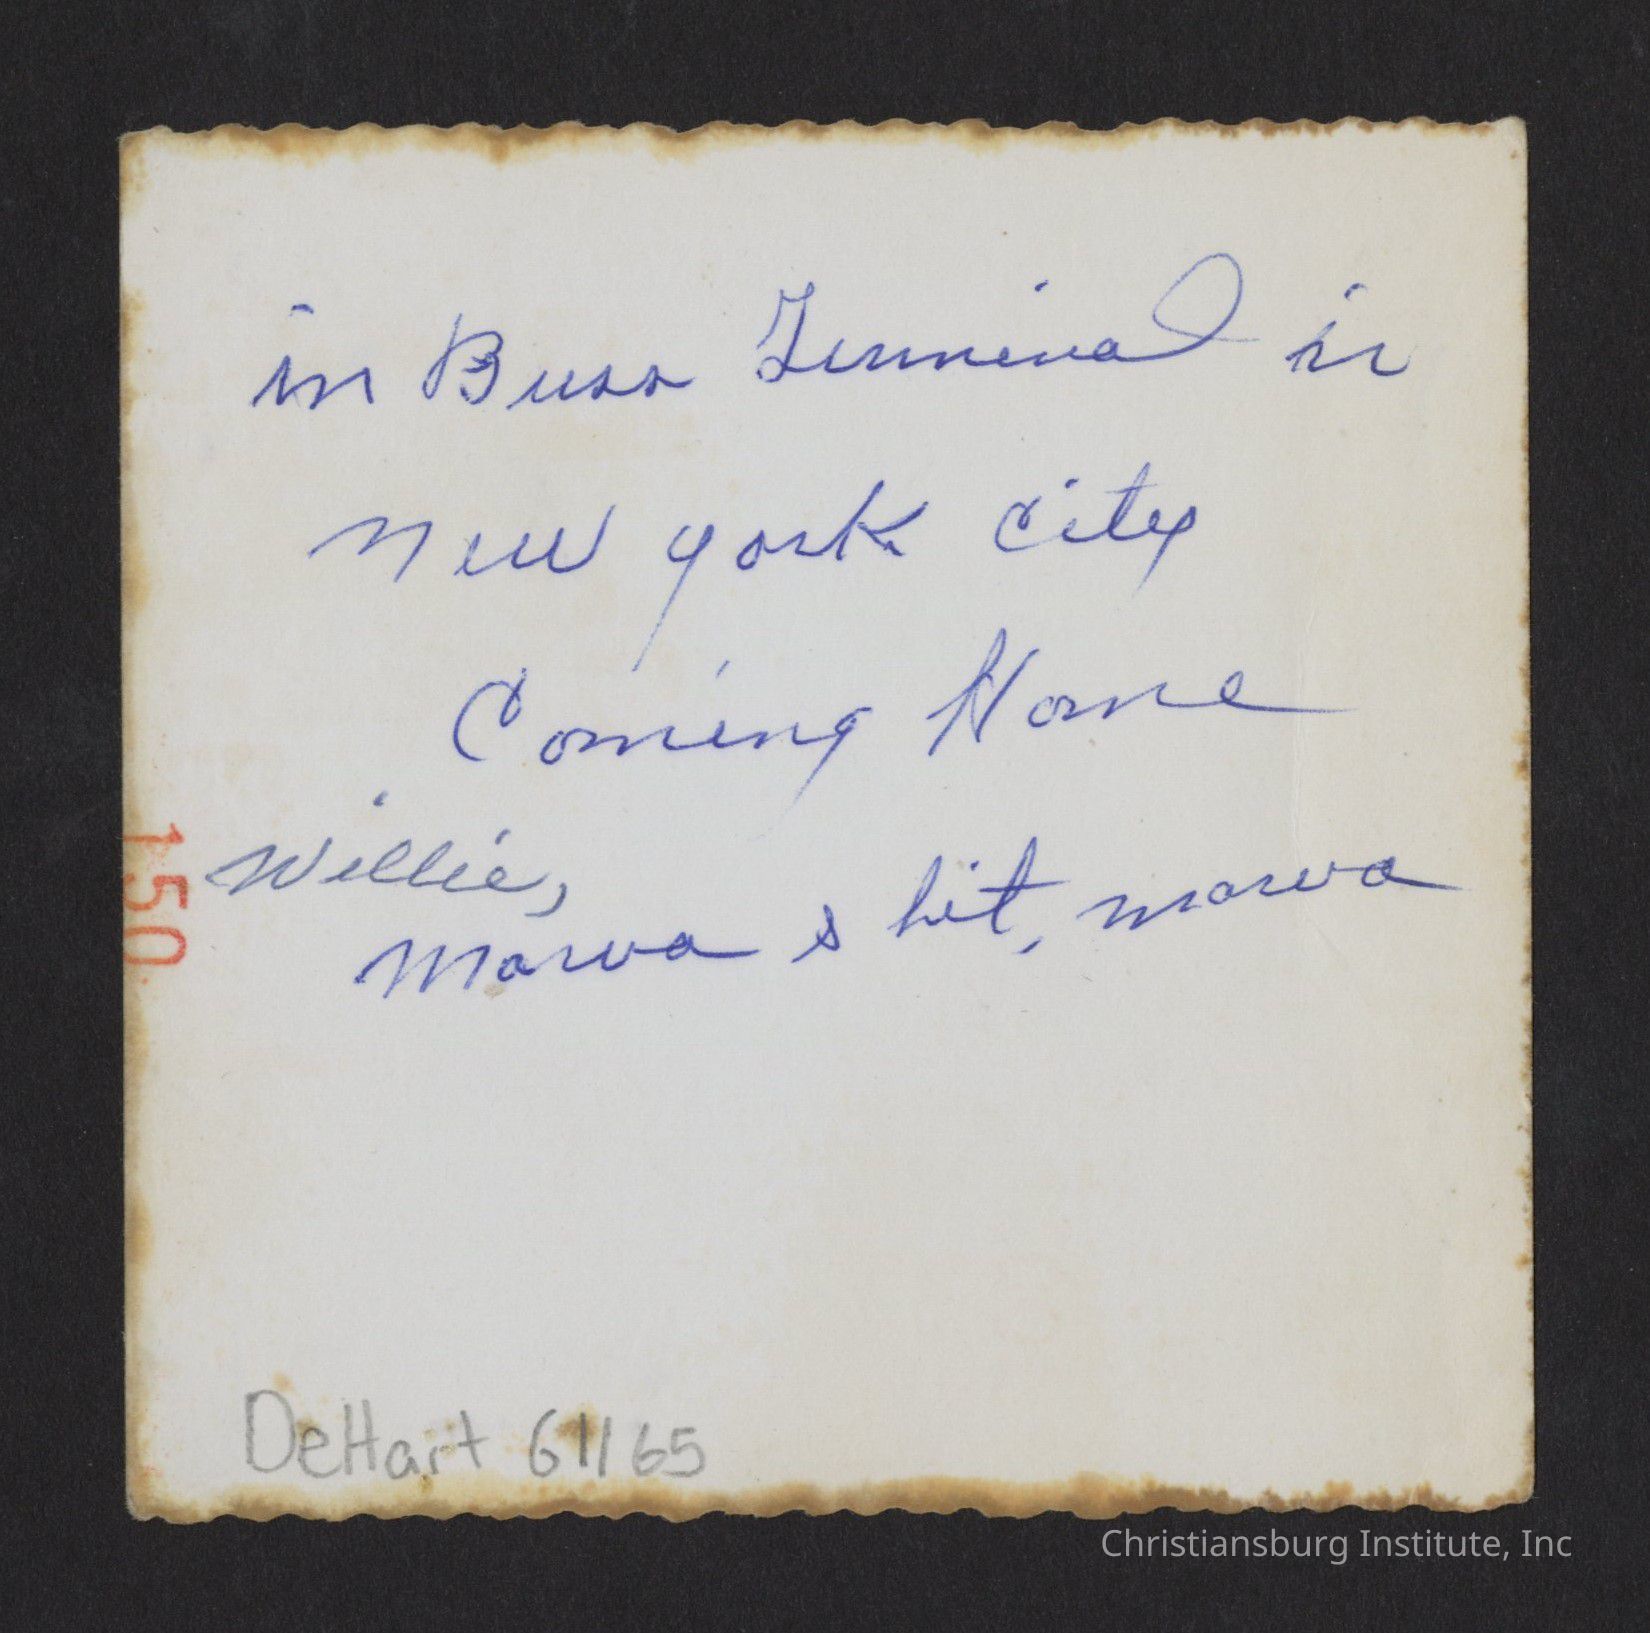 in Buss Terminal in
New York City
Coming Home
Willie,
Marva s hit, marva
150
DeHart 61165
Christiansburg Institute, Inc